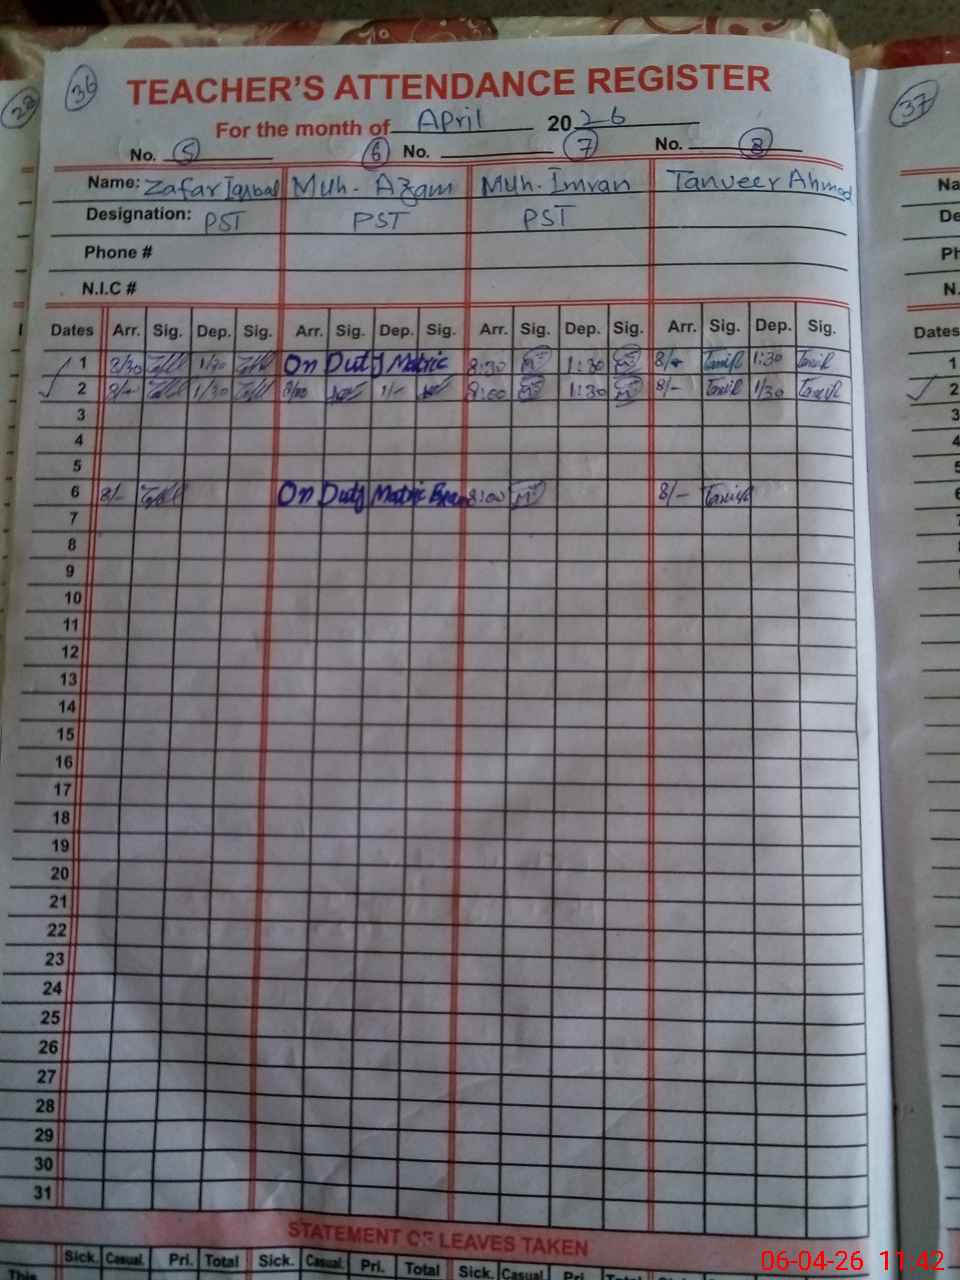 28
36
37
TEACHER'S ATTENDANCE REGISTER
For the month of April 2026
No. 5 6 No. 7 No. 8
Name: Zafar Iqbal Muh. Azam Muh. Imran Tanveer Ahmad
Designation: PST PST PST
Phone #
N.I.C #
Dates Arr. Sig. Dep. Sig. Arr. Sig. Dep. Sig. Arr. Sig. Dep. Sig. Arr. Sig. Dep. Sig.
1 8/30 1/30 On Duty Matric 8:30 1:30 8/- 1:30
2 8/- 1/30 8/00 1/- 8:00 1:30 8/- 1/30
3
4
5
6 8/- On Duty Matric Exam 8:00 8/-
7
8
9
10
11
12
13
14
15
16
17
18
19
20
21
22
23
24
25
26
27
28
29
30
31
STATEMENT OF LEAVES TAKEN
Sick. Casual Pri. Total Sick. Casual Pri. Total Sick. Casual Pri. Total Sick.
This
Na
De
Ph
N.
Dates
1
2
3
4
5
6
7
8
9
10
11
12
13
14
15
16
17
18
19
20
21
22
23
24
25
26
27
28
29
30
31
06-04-26 11:42